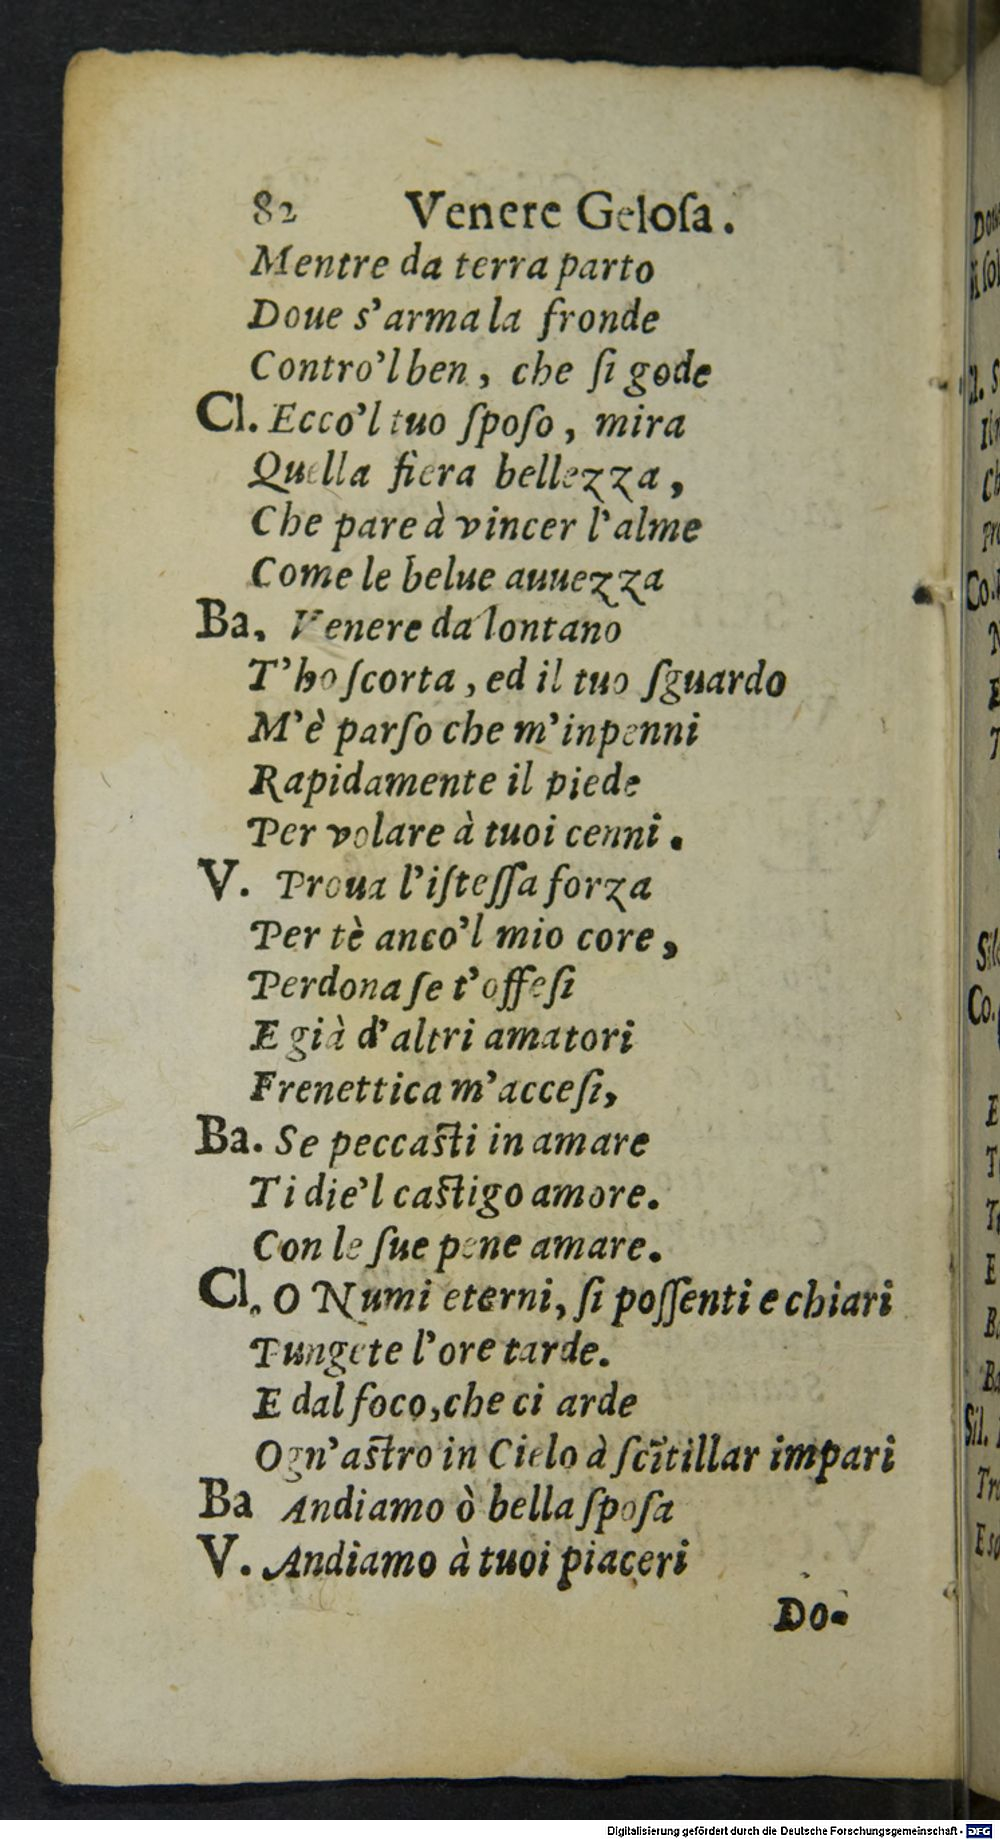 82 Venere Geloſa.
Mentre da terra parto
Doue s'arma la fronde
Contro'l ben, che ſi gode
Cl. Ecco'l tuo ſpoſo, mira
Quella fiera bellezza,
Che pare à vincer l'alme
Come le belue auuezza
Ba. Venere da lontano
T'ho ſcorta, ed il tuo ſguardo
M'è parſo che m'inpenni
Rapidamente il piede
Per volare à tuoi cenni.
V. Proua l'iſteſſa forza
Per tè anco'l mio core,
Perdona ſe t'offeſi
E già d'altri amatori
Frenettica m'acceſi,
Ba. Se peccaſti in amare
Ti die'l caſtigo amore.
Con le ſue pene amare.
Cl. O Numi eterni, ſi poſſenti e chiari
Pungete l'ore tarde.
E dal foco, che ci arde
Ogn'aſtro in Cielo à ſcĩtillar impari
Ba Andiamo ò bella ſpoſa
V. Andiamo à tuoi piaceri
Do-
Digitalisierung gefördert durch die Deutsche Forschungsgemeinschaft - DFG